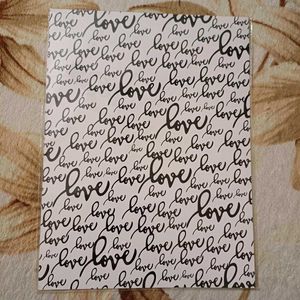 love love love love love
love love love love love love
love love love love love love
love love love love love
love love love love love love love
love love love love love love
love love love love love love
love love love love love love
love love love love love love
love love love love love
love love love love love love
love love love love love
love love love love love love
love love love love love love
love love love love love
love love love love love love